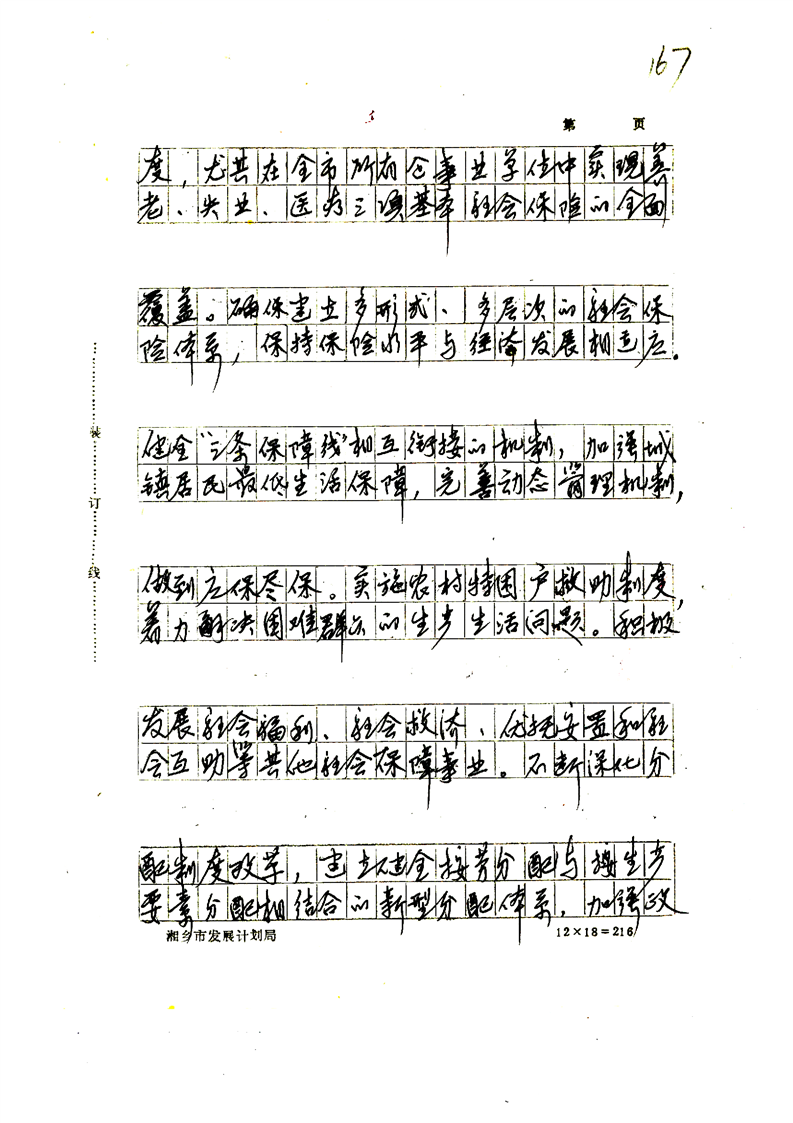 167
第 页
度，尤其在全市所有企事业单位中实现养
老、失业、医疗三项基本社会保险的全面
覆盖。确保建立多形式、多层次的社会保
险体系，保持保险水平与经济发展相适应。
健全“三条保障线”相互衔接的机制，加强城
镇居民最低生活保障，完善动态管理机制，
做到应保尽保。实施农村特困户救助制度，
着力解决困难群众的生产生活问题。积极
发展社会福利、社会救济、优抚安置和社
会互助等其他社会保障事业。不断深化分
配制度改革，建立健全按劳分配与按生产
要素分配相结合的新型分配体系，加强政
湘乡市发展计划局 12×18=216
装
订
线